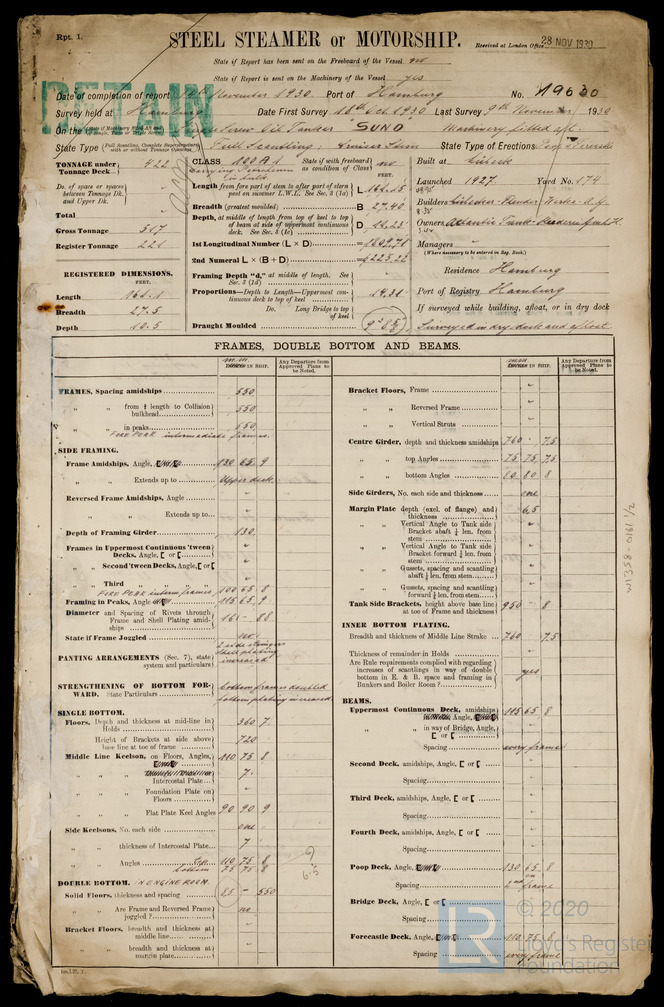 Rpt. 1.
STEEL STEAMER or MOTORSHIP.
Received at London Office 28 NOV 1930
State if Report has been sent on the Freeboard of the Vessel yes
State if Report is sent on the Machinery of the Vessel yes
RETAIN
Date of completion of report 14th November 1930 Port of Hamburg No. 19630
Survey held at Hamburg Date First Survey 10th Oct. 1930 Last Survey 9th November 1930
On the Oil Tanker "SUND" Machinery fitted aft
State Type Full Scantling State Type of Erections
TONNAGE under Tonnage Deck 422
Do. of space or spaces between Tonnage Dk. and Upper Dk.
Total
Gross Tonnage 517
Register Tonnage 221
REGISTERED DIMENSIONS.
FEET.
Length
Breadth 27.5
Depth 10.5
CLASS 100A1 State if with freeboard as condition of Class no
Carrying Petroleum in bulk
FEET.
Length from fore part of stem to after part of stern post on summer L.W.L. See Sec. 3 (1a) L
Breadth (greatest moulded) B 27.40
Depth, at middle of length from top of keel to top of beam at side of uppermost continuous deck. See Sec. 3 (1c) D
1st Longitudinal Number (L × D)
2nd Numeral L × (B + D)
Framing Depth "d," at middle of length. See Sec. 3 (1d)
Proportions—Depth to Length—Uppermost continuous deck to top of keel
Do. Long Bridge to top of keel
Draught Moulded
Built at Lübeck
Launched 1927 Yard No. 174
Builders
Owners
Managers
(Where necessary to be entered in Reg. Book.)
Residence Hamburg
Port of Registry Hamburg
If surveyed while building, afloat, or in dry dock
Surveyed in dry dock and afloat
FRAMES, DOUBLE BOTTOM AND BEAMS.
IN SHIP. Any Departure from Approved Plans to be Noted.
FRAMES, Spacing amidships 550
" " from ⅕ length to Collision bulkhead 550
" " in peaks 550
Fore Peak intermediate frames.
SIDE FRAMING.
Frame Amidships, Angle, 130 65 9
" " Extends up to Upper deck
Reversed Frame Amidships, Angle
" " Extends up to
Depth of Framing Girder 130
Frames in Uppermost Continuous 'tween Decks, Angle, [ or [
" Second 'tween Decks, Angle, [ or [
" Third " " " "
Fore Peak interm. frames 100 65 8
Framing in Peaks, Angle 115 65 9
Diameter and Spacing of Rivets through Frame and Shell Plating amidships 161 - 88
State if Frame Joggled no.
PANTING ARRANGEMENTS (Sec. 7), state system and particulars 2 side stringers shell plating increased
STRENGTHENING OF BOTTOM FORWARD. State Particulars bottom frames doubled bottom plating increased
SINGLE BOTTOM.
Floors, Depth and thickness at mid-line in Holds 360 7.
" Height of Brackets at side above base line at toe of frame 720
Middle Line Keelson, on Floors, Angles, 110 75 8
" " Intercostal Plate 7
" " Foundation Plate on Floors
" " Flat Plate Keel Angles 90 90 9
Side Keelsons, No. each side one
" " thickness of Intercostal Plate 7
" " Angles Top 110 75 8
bottom 75 75 8
DOUBLE BOTTOM. IN ENGINE ROOM
Solid Floors, thickness and spacing 8.5 - 550
" Are Frame and Reversed Frame joggled? no
Bracket Floors, breadth and thickness at middle line
" breadth and thickness at margin plate
Bracket Floors, Frame
" " Reversed Frame
" " Vertical Struts
Centre Girder, depth and thickness amidships 760 - 7.5
" " top Angles 75 75 7.5
" " bottom Angles 80 80 8
Side Girders, No. each side and thickness one
Margin Plate depth (excl. of flange) and thickness 6.5
" Vertical Angle to Tank side Bracket abaft ¼ len. from stem
" Vertical Angle to Tank side Bracket forward ¼ len. from stem
" Gussets, spacing and scantling abaft ¼ len. from stem
" Gussets, spacing and scantling forward ¼ len. from stem
Tank Side Brackets, height above base line at toe of Frame and thickness 950 - 8
INNER BOTTOM PLATING.
Breadth and thickness of Middle Line Strake 760 - 7.5
Thickness of remainder in Holds
Are Rule requirements complied with regarding increases of scantlings in way of double bottom in E. & B. space and framing in Bunkers and Boiler Room? yes
BEAMS.
Uppermost Continuous Deck, amidships Angle, 115 65 8
" " in way of Bridge, Angle, [ or [
Spacing every frame
Second Deck, amidships, Angle, [ or [
Spacing
Third Deck, amidships, Angle, [ or [
Spacing
Fourth Deck, amidships, Angle, [ or [
Spacing
Poop Deck, Angle, 130 65 8
Spacing frame
Bridge Deck, Angle, [ or [
Spacing
Forecastle Deck, Angle, 110 75 8
Spacing every frame
LR
© 2020
Lloyd's Register
Foundation